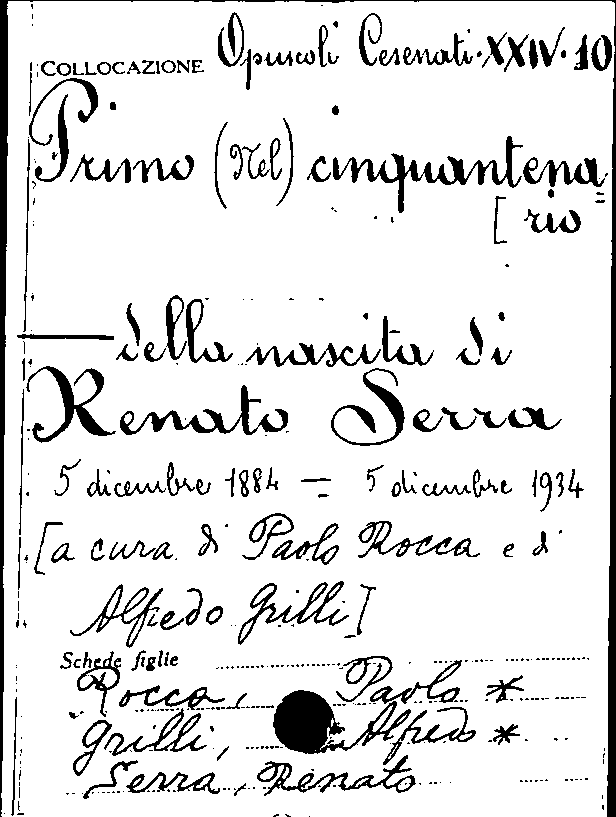 COLLOCAZIONE Opuscoli Cesenati. XXIV. 10
Primo (Nel) cinquantena=
[rio
della nascita di
Renato Serra
5 dicembre 1884 = 5 dicembre 1934
[a cura di Paolo Rocca e di
Alfredo Grilli]
Schede figlie
Rocca, Paolo *
Grilli, Alfredo *
Serra, Renato